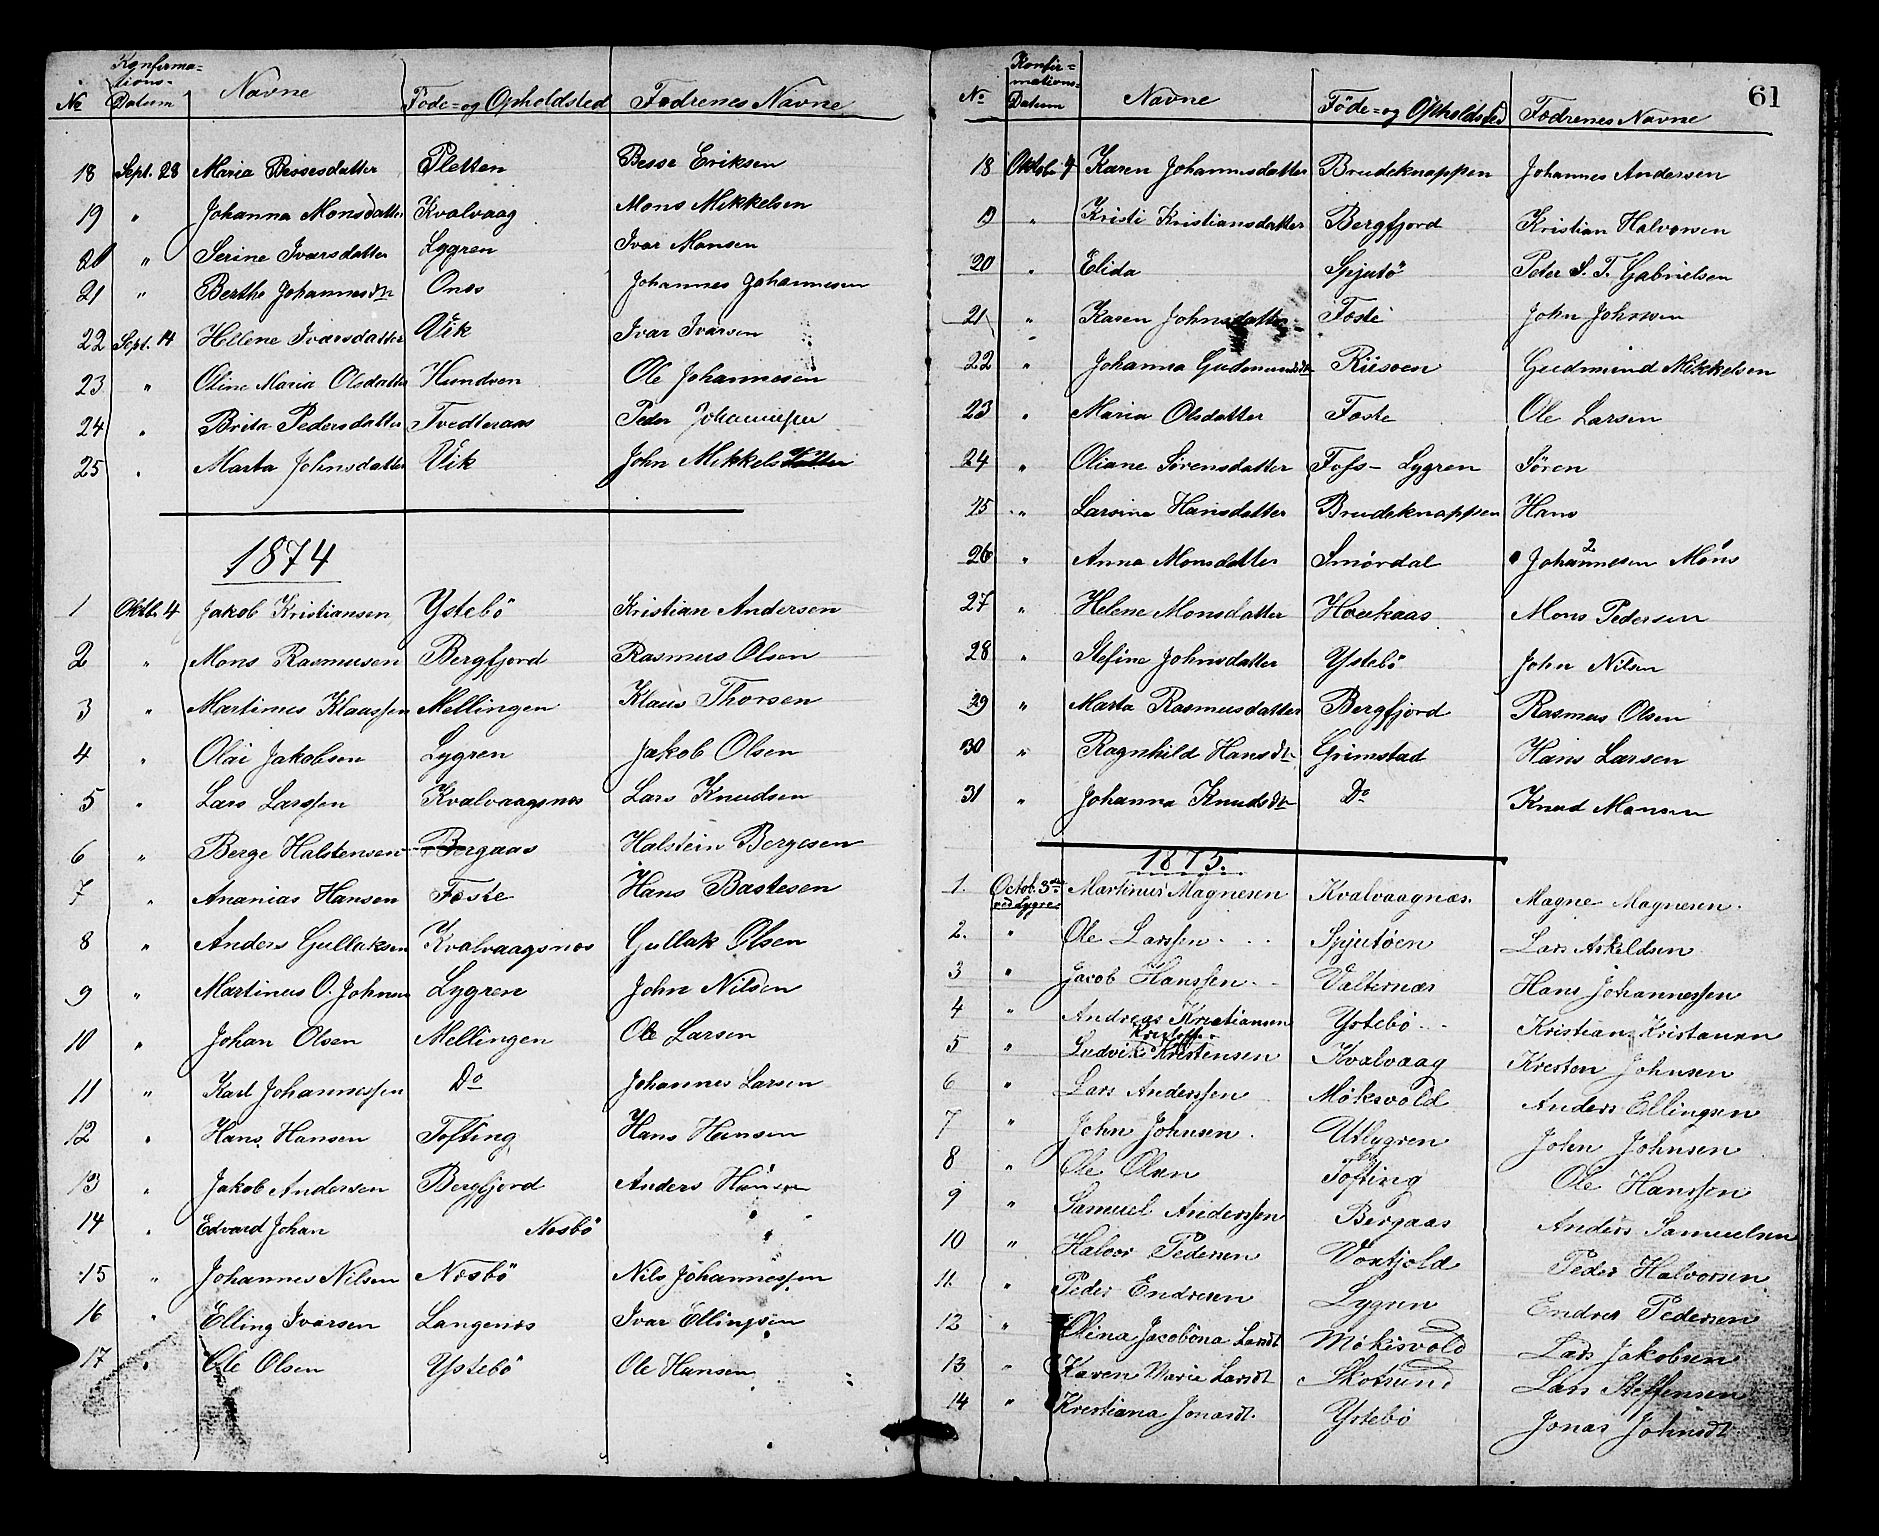 Konfirma=
tions-
No Datum Navne Föde=og Opholdsted Fædrenes Navne
18 Sept. 28 Maria Bessesdatter Sletten Besse Eriksen
19 " Johanna Monsdatter Kvalvaag Mons Mikkelsen
20 " Serine Ivarsdatter Lygren Ivar Monsen
21 " Berthe Johannesdtr Onæs Johannes Johannesen
22 Sept. 14 Hellene Ivarsdatter Vik Ivar Ivarsen
23 " Oline Maria Olsdatter Hundven Ole Johannesen
24 " Brita Pedersdatter Tvedteraas Peder Johannesen
25 " Marta Johnsdatter Vik John Mikkels
1874
1 Oktb. 4 Jakob Kristiansen Ystebö Kristian Andersen
2 " Mons Rasmusen Bergfjord Rasmus Olsen
3 " Martinus Klaassen Mellingen Klaus Thorsen
4 " Olai Jakobsen Lygren Jakob Olsen
5 " Lars Larssen Kvalvaagsnæs Lars Knudsen
6 " Berge Halstensen Bergaas Halstein Bergesen
7 " Ananias Hansen Foste Hans Bastesen
8 " Anders Gullaksen Kvalvaagsnæs Gullak Olsen
9 " Martinus O. Johnsen Lygren John Nilsen
10 " Johan Olsen Mellingen Ole Larsen
11 " Karl Johannessen Do Johannes Larsen
12 " Hans Hansen Tofting Hans Hansen
13 " Jakob Andersen Bergfjord Anders Hansen
14 " Edvard Johan Næsbö " "
15 " Johannes Nilsen Næsbö Nils Johannessen
16 " Elling Ivarsen Langenæs Ivar Ellingsen
17 " Ole Olsen Ystebö Ole Hansen
61
Konfir=
mations-
No Datum Navne Föde=og Opholdsted Fædrenes Navne
18 Oktob. 4 Karen Johannesdatter Brudeknappen Johannes Andersen
19 " Kristi Kristiansdatter Bergfjord Kristian Halvorsen
20 " Elida Spjutö Peder S. T. Gabrielsen
21 " Karen Johnsdatter Foste John Johnsen
22 " Johanna Gudmundsdtr Riisøen Gudmund Mikkelsen
23 " Maria Olsdatter Foste Ole Larsen
24 " Oliane Sørensdatter Foss-Lygren Sören
25 " Larsine Hansdatter Brudeknappen Hans
26 " Anna Monsdatter Smørdal Johannesen Mons
27 " Helene Monsdatter Houkaas Mons Pedersen
28 " Stefine Johnsdatter Ystebö John Nilsen
29 " Marta Rasmusdatter Bergfjord Rasmus Olsen
30 " Ragnhild Hansdtr Grimstad Hans Larsen
31 " Johanna Knudsdtr Do Knud Monsen
1875.
1. Octob. 3die Martinus Magnesen Kvalvaagnæs. Magne Magnesen.
ved Lygre
2. " Ole Larssen Spjutøen Lars Askeldsen
3 " Jacob Hanssen Valternæs Hans Johannessen
4 " Andreas Kristiansen Ystebø Kristian Kristiansen
5 " Ludvik Kristensen Kvalvaag Kresten Johnsen
6 " Lars Anderssen Møksvold Anders Ellingsen
7 " John Johnsen. Utlygren John Johnsen
8 " Ole Olsen Tofting Ole Hanssen
9 " Samuel Anderssen Bergaas Anders Samuelsen
10 " Halvor Pedersen Vortjold Peder Halvorsen
11 " Peder Endresen Lygren Endres Pedersen
12 " Olina Jacobina Larsdt Møkisvold Lars Jakobsen
13 " Karen Marie Larsdt Skotsund Lars Steffensen
14 " Krestiana Jonasdt. Ystebö Jonas Johnsdt